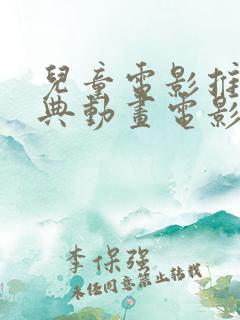 兒童電影推
典動畫電影
李保强
未经同意禁止转载